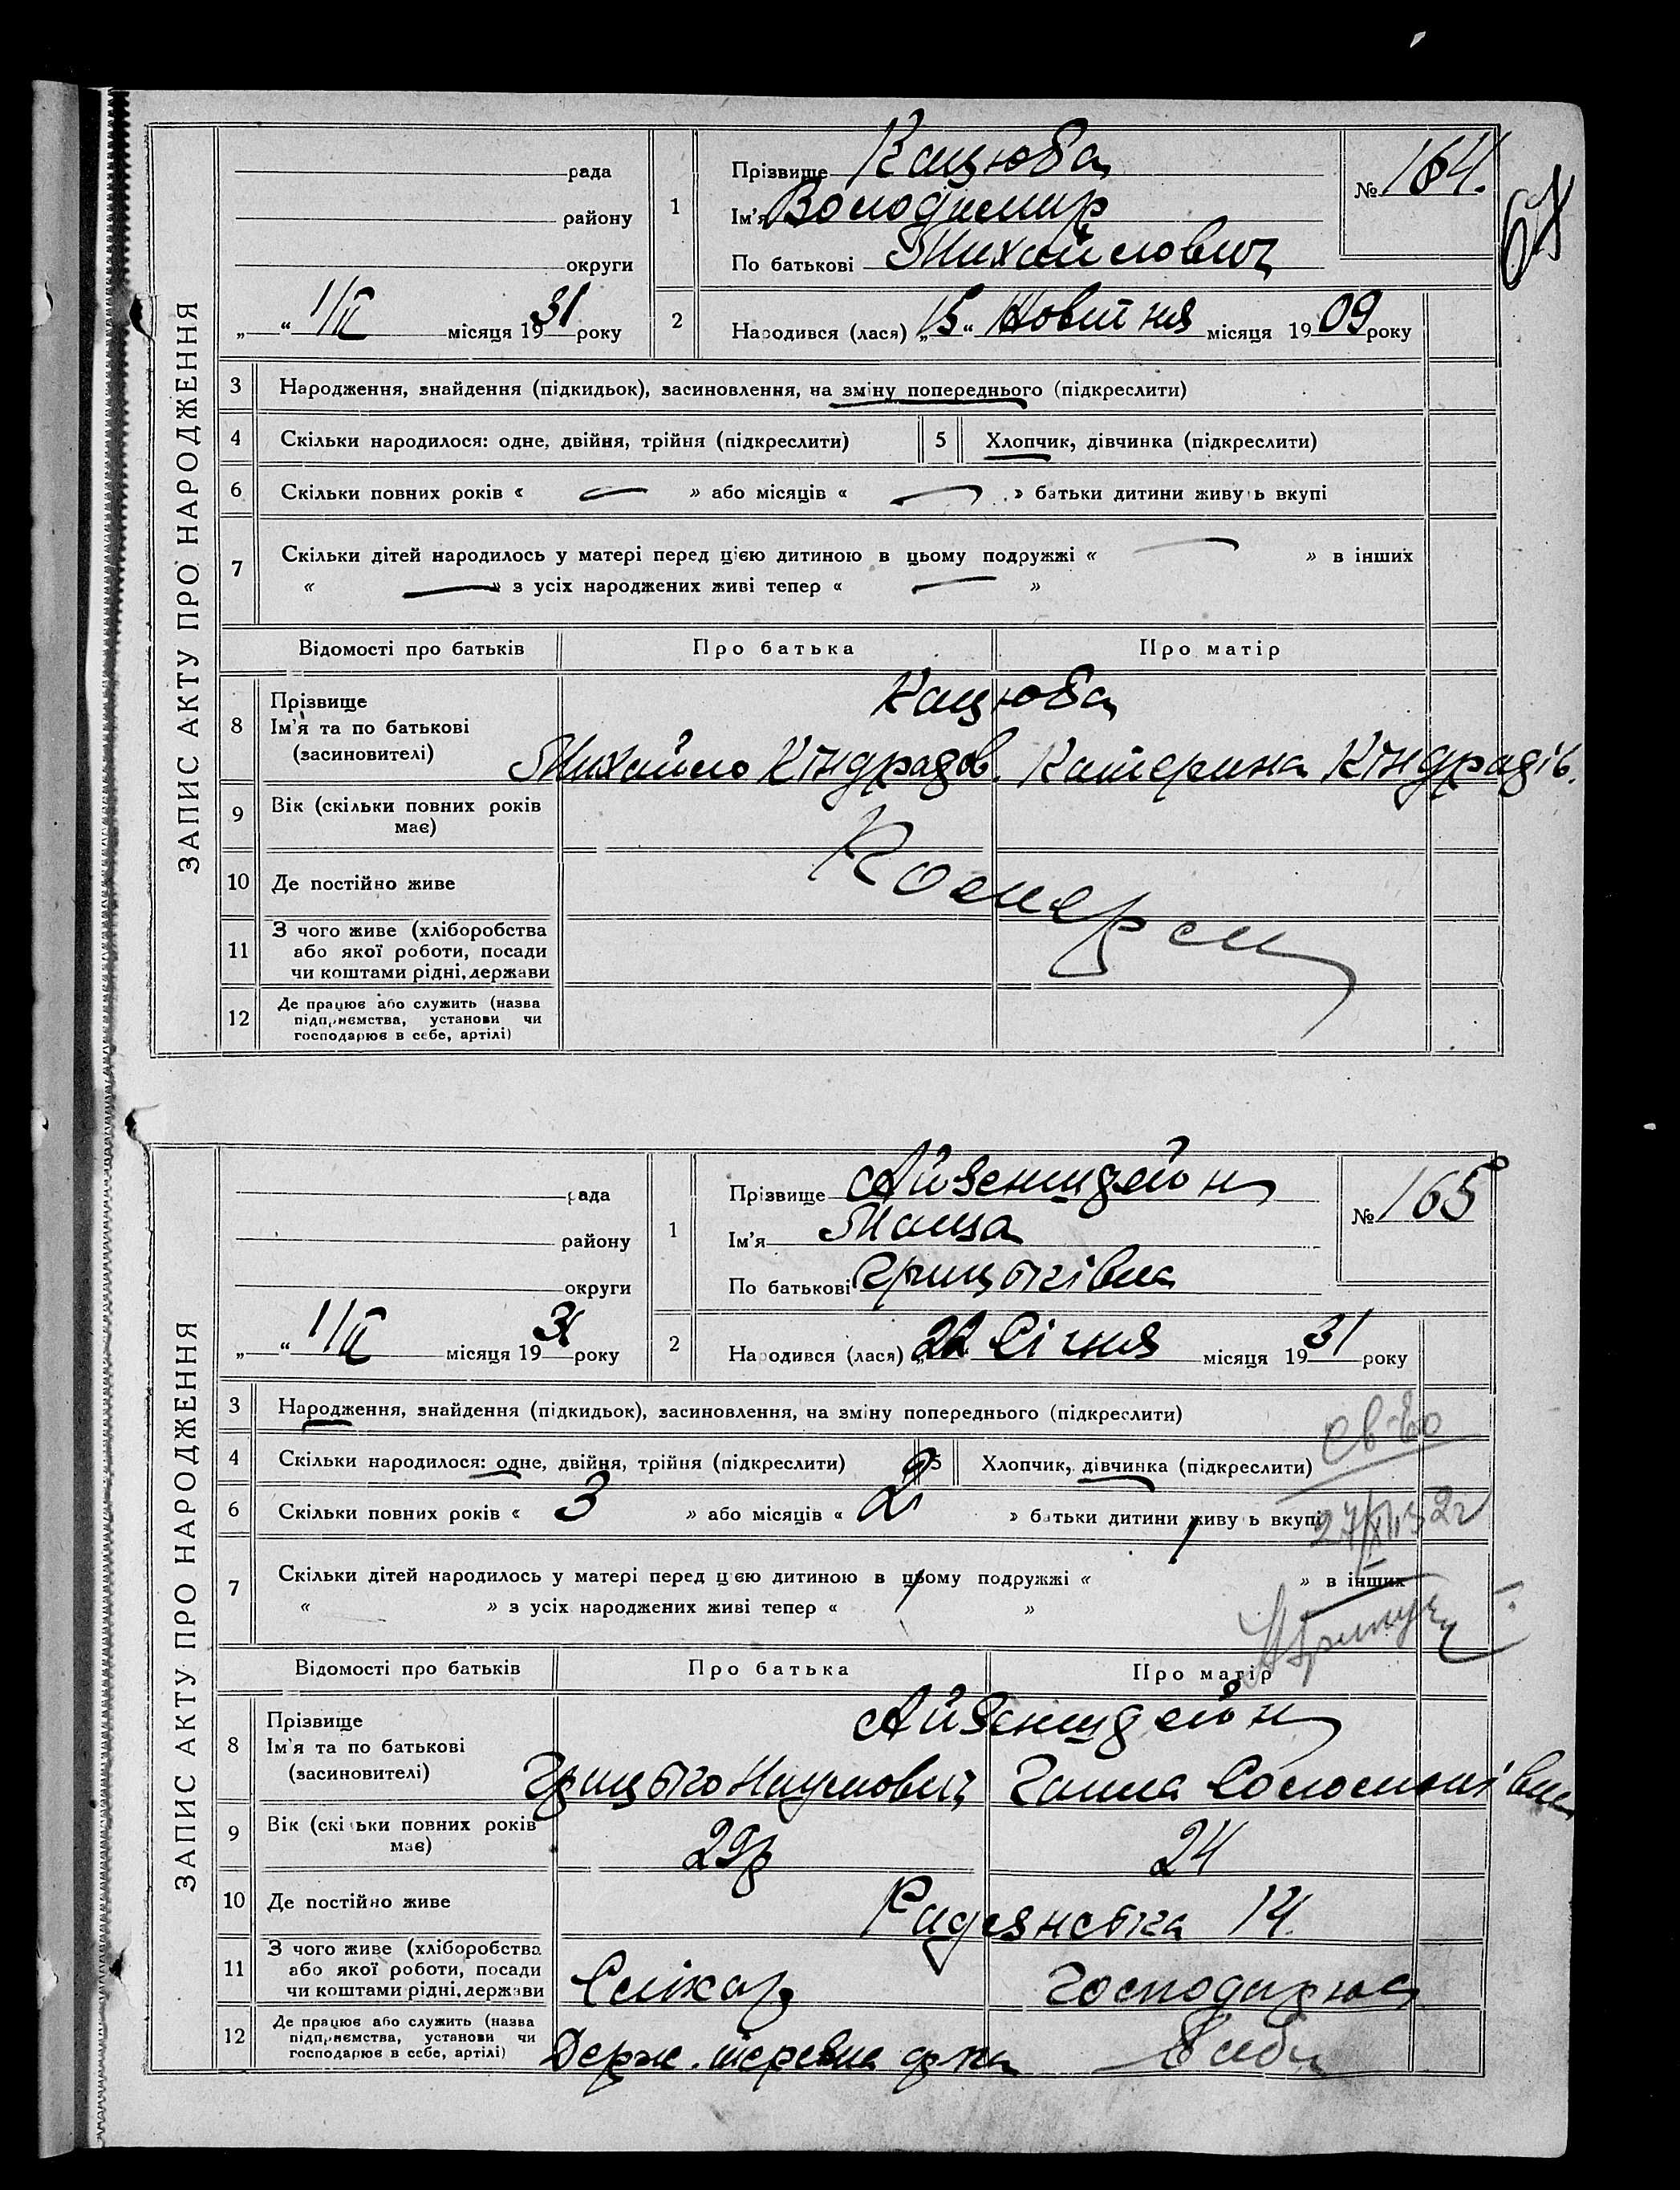 ЗАПИС АКТУ ПРО НАРОДЖЕННЯ
рада
району
округи
„ “ 1/II місяця 1931 року
1
Прізвище Кацюба
Ім'я Володимир
По батькові Михайлович
№ 164.
2
Народився (лася) „15“ Жовтня місяця 1909 року
3 Народження, знайдення (підкидьок), засиновлення, на зміну попереднього (підкреслити)
4 Скільки народилося: одне, двійня, трійня (підкреслити)
5 Хлопчик, дівчинка (підкреслити)
6 Скільки повних років « — » або місяців « — » батьки дитини живуть вкупі
7 Скільки дітей народилось у матері перед цією дитиною в цьому подружжі « — » в інших
« — » з усіх народжених живі тепер « — »
Відомості про батьків Про батька Про матір
8 Прізвище
Ім'я та по батькові
(засиновителі)
Кацюба
Михайло Кіндратов. Катерина Кіндратів.
9 Вік (скільки повних років
має)
10 Де постійно живе
11 З чого живе (хліборобства
або якої роботи, посади
чи коштами рідні, держави
12 Де працює або служить (назва
підприємства, установи чи
господарює в себе, артілі)
ЗАПИС АКТУ ПРО НАРОДЖЕННЯ
рада
району
округи
„ “ 1/II місяця 1931 року
1
Прізвище Айзенштейн
Ім'я Маша
По батькові Грицьківна
№ 165
2
Народився (лася) „22 Січня місяця 1931 року
3 Народження, знайдення (підкидьок), засиновлення, на зміну попереднього (підкреслити)
4 Скільки народилося: одне, двійня, трійня (підкреслити)
5 Хлопчик, дівчинка (підкреслити)
св-во
6 Скільки повних років « 3 » або місяців « 2 » батьки дитини живуть вкупі
7 Скільки дітей народилось у матері перед цією дитиною в цьому подружжі « » в інших
« » з усіх народжених живі тепер « »
Відомості про батьків Про батька Про матір
8 Прізвище
Ім'я та по батькові
(засиновителі)
Айзенштейн
Грицько Наумович Ганна Соломонівна
9 Вік (скільки повних років
має)
29р 24
10 Де постійно живе
Радянська 14.
11 З чого живе (хліборобства
або якої роботи, посади
чи коштами рідні, держави
Слюсар господарює
12 Де працює або служить (назва
підприємства, установи чи
господарює в себе, артілі)
Держ.